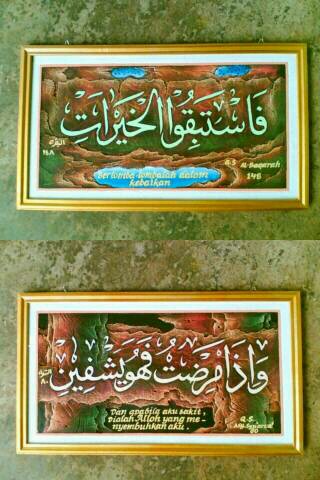 فَاسْتَبِقُوا الْخَيْرَاتِ
البقرة
١٤٨
Q.S
Al-Baqarah
148
Berlomba-lombalah dalam
kebaikan
وَإِذَا مَرِضْتُ فَهُوَ يَشْفِينِ
٨٠
Dan apabila aku sakit,
Dialah Alloh yang me-
nyembuhkan aku.
Q.S.
80